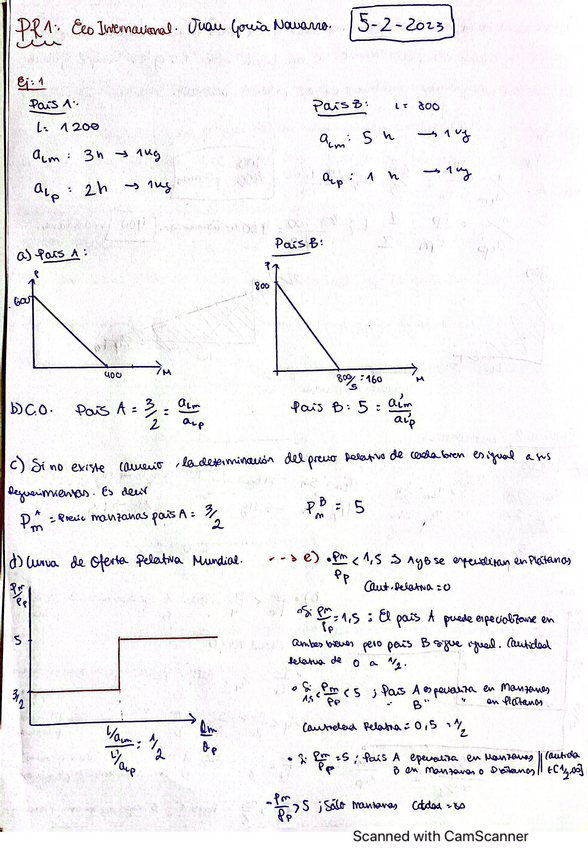 PR1: Eco Internacional. Juan Goria Navarro. 5-2-2023
Ej: 1
País A:
L= 1200
aLm : 3h → 1kg
aLp : 2h → 1kg
País B: L= 800
aLm : 5 h → 1kg
aLp : 1 h → 1kg
a) País A:
P
600
400
M
País B:
P
800
800/5 = 160
M
b) C.O. País A = 3/2 = aLm/aLp
País B: 5 = a'Lm/a'Lp
c) Si no existe comercio, la determinación del precio relativo de cada bien es igual a sus
requerimientos. Es decir
PmA = Precio manzanas país A = 3/2
PmB = 5
d) Curva de Oferta Relativa Mundial.
Pm/Pp
5
3/2
L/aLm / L'/a'Lp = 1/2
Qm/Qp
--> e) • Pm/Pp < 1,5 ⇒ A y B se especializan en Plátanos
Cant. Relativa = 0
• Si Pm/Pp = 1,5 ; El país A puede especializarse en
ambos bienes pero país B sigue igual. Cantidad
relativa de 0 a 1/2.
• Si 1,5 < Pm/Pp < 5 ; País A especializa en Manzanas
" B " en plátanos.
Cantidad Relativa = 0,5 = 1/2
• Si Pm/Pp = 5 ; País A especializa en Manzanas || Cantida
B en Manzanas o Plátanos || +[1/2,∞]
- Pm/Pp > 5 ; Sólo manzanas Cdad = ∞
Scanned with CamScanner